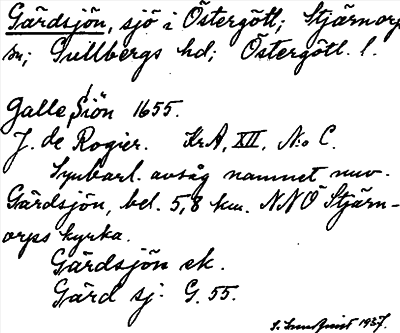 Gärdsjön, sjö i Östergötl; Stjärnorp
sn; Gullbergs hd; Östergötl. l.
Galle Siön 1655.
J. de Rogier. KrA, XII, N:o C.
Synbarl. avsåg namnet nuv.
Gärdsjön, bel. 5,8 km. NNO Stjärn-
orps kyrka.
Gärdsjön ek.
Gärd sj. G. 55.
1937.